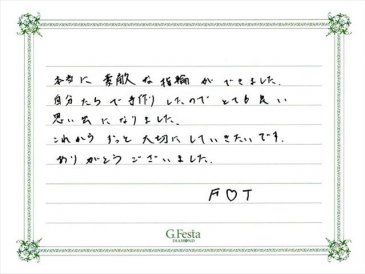 本当に素敵な指輪ができました。
自分たちで手作りしたのでとても良い
思い出になりました。
これからずっと大切にしていきたいです。
ありがとうございました。
F♡T
G.Festa
DIAMOND